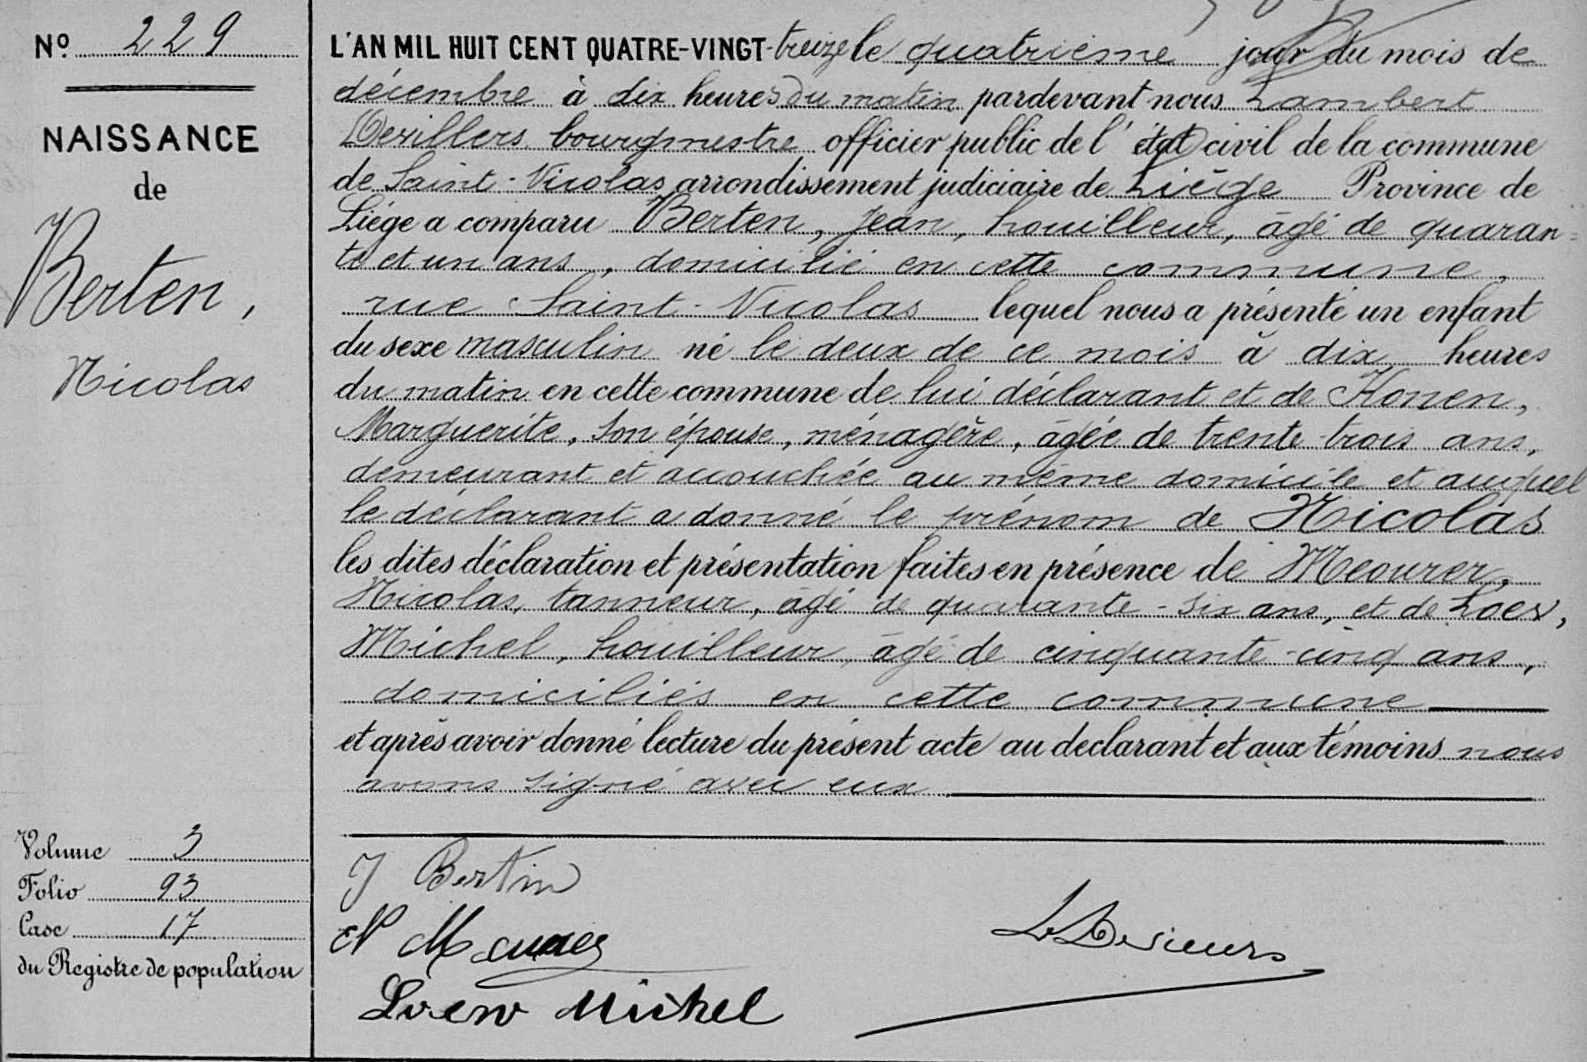 Nº 229
NAISSANCE
de
Berten,
Nicolas
Volume 3
Folio 93
Case 17
du Registre de population
L'AN MIL HUIT CENT QUATRE-VINGT-treize le quatrième jour du mois de
décembre à dix heures du matin pardevant nous Lambert
Desillers bourgmestre officier public de l'état civil de la commune
de Saint-Nicolas arrondissement judiciaire de Liége Province de
Liége a comparu Berten, Jean, houilleur, âgé de quaran=
te et un ans, domicilié en cette commune,
rue Saint-Nicolas lequel nous a présenté un enfant
du sexe masculin né le deux de ce mois à dix heures
du matin en cette commune de lui déclarant et de Konen,
Marguerite, son épouse, ménagère, âgée de trente trois ans,
demeurant et accouchée au même domicile et auquel
le déclarant a donné le prénom de Nicolas
les dites déclaration et présentation faites en présence de Meourer,
Nicolas, tanneur, âgé de quarante-six ans, et de Loev,
Michel, houilleur, âgé de cinquante-cinq ans,
domiciliés en cette commune
et après avoir donné lecture du présent acte au declarant et aux témoins nous
avons signé avec eux
J Bertin
N
Michel